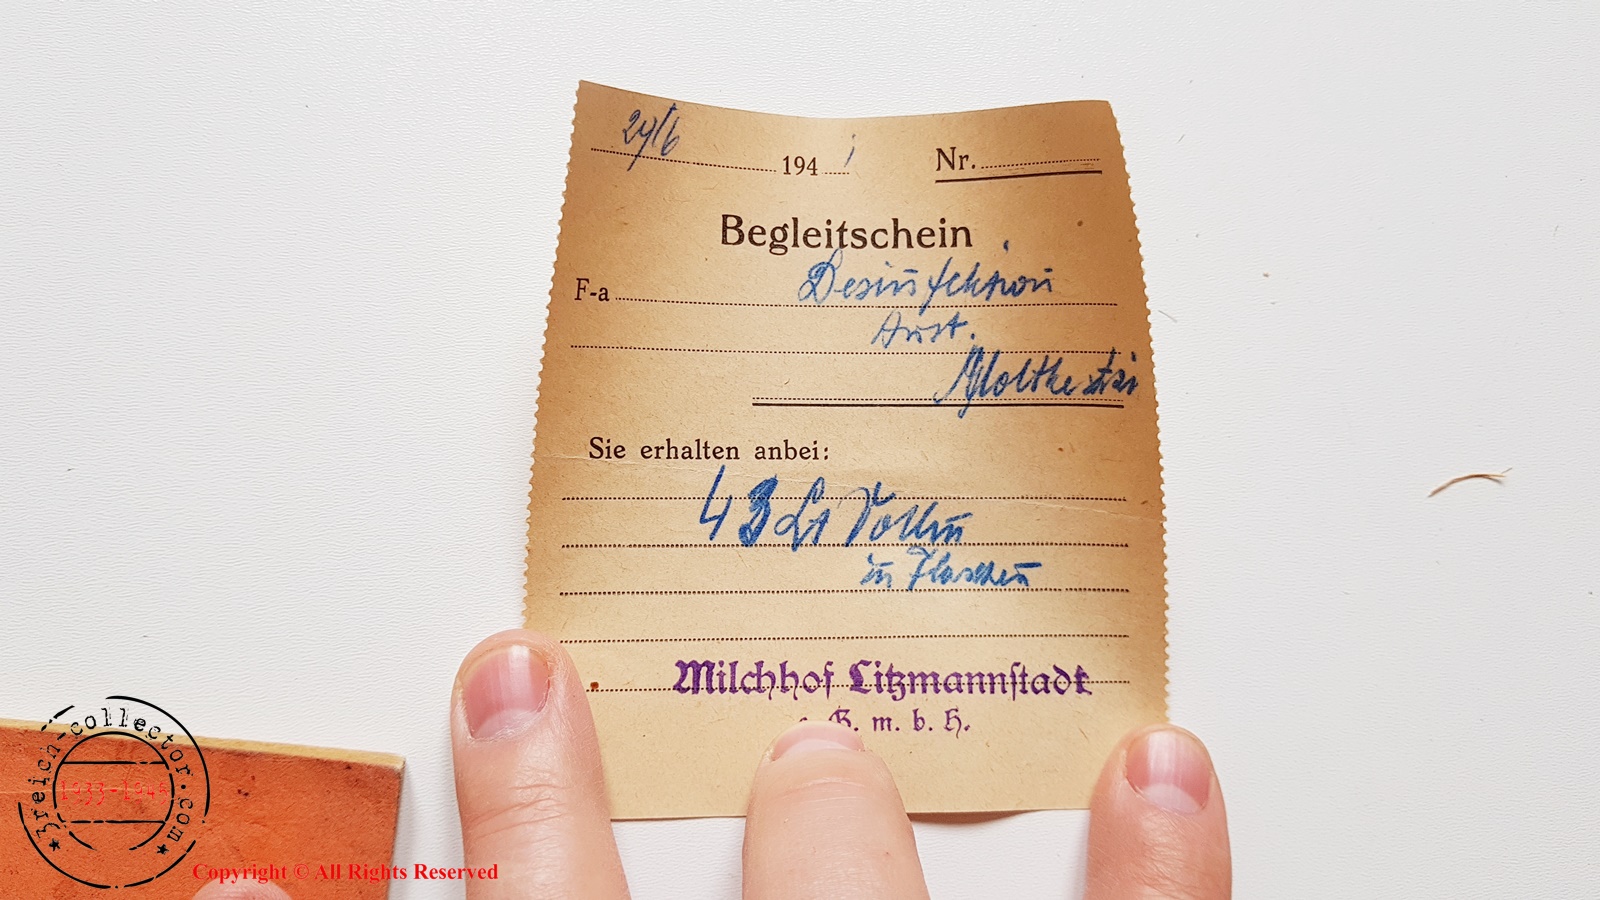 24/6 1941 Nr.
Begleitschein
F-a Desinfektion
Anst.
Moltkestr
Sie erhalten anbei:
43 Lt Vollm
in Flaschen
Milchhof Litzmannstadt
G. m. b. H.
3reich-collector.com
1933-1945
Copyright © All Rights Reserved